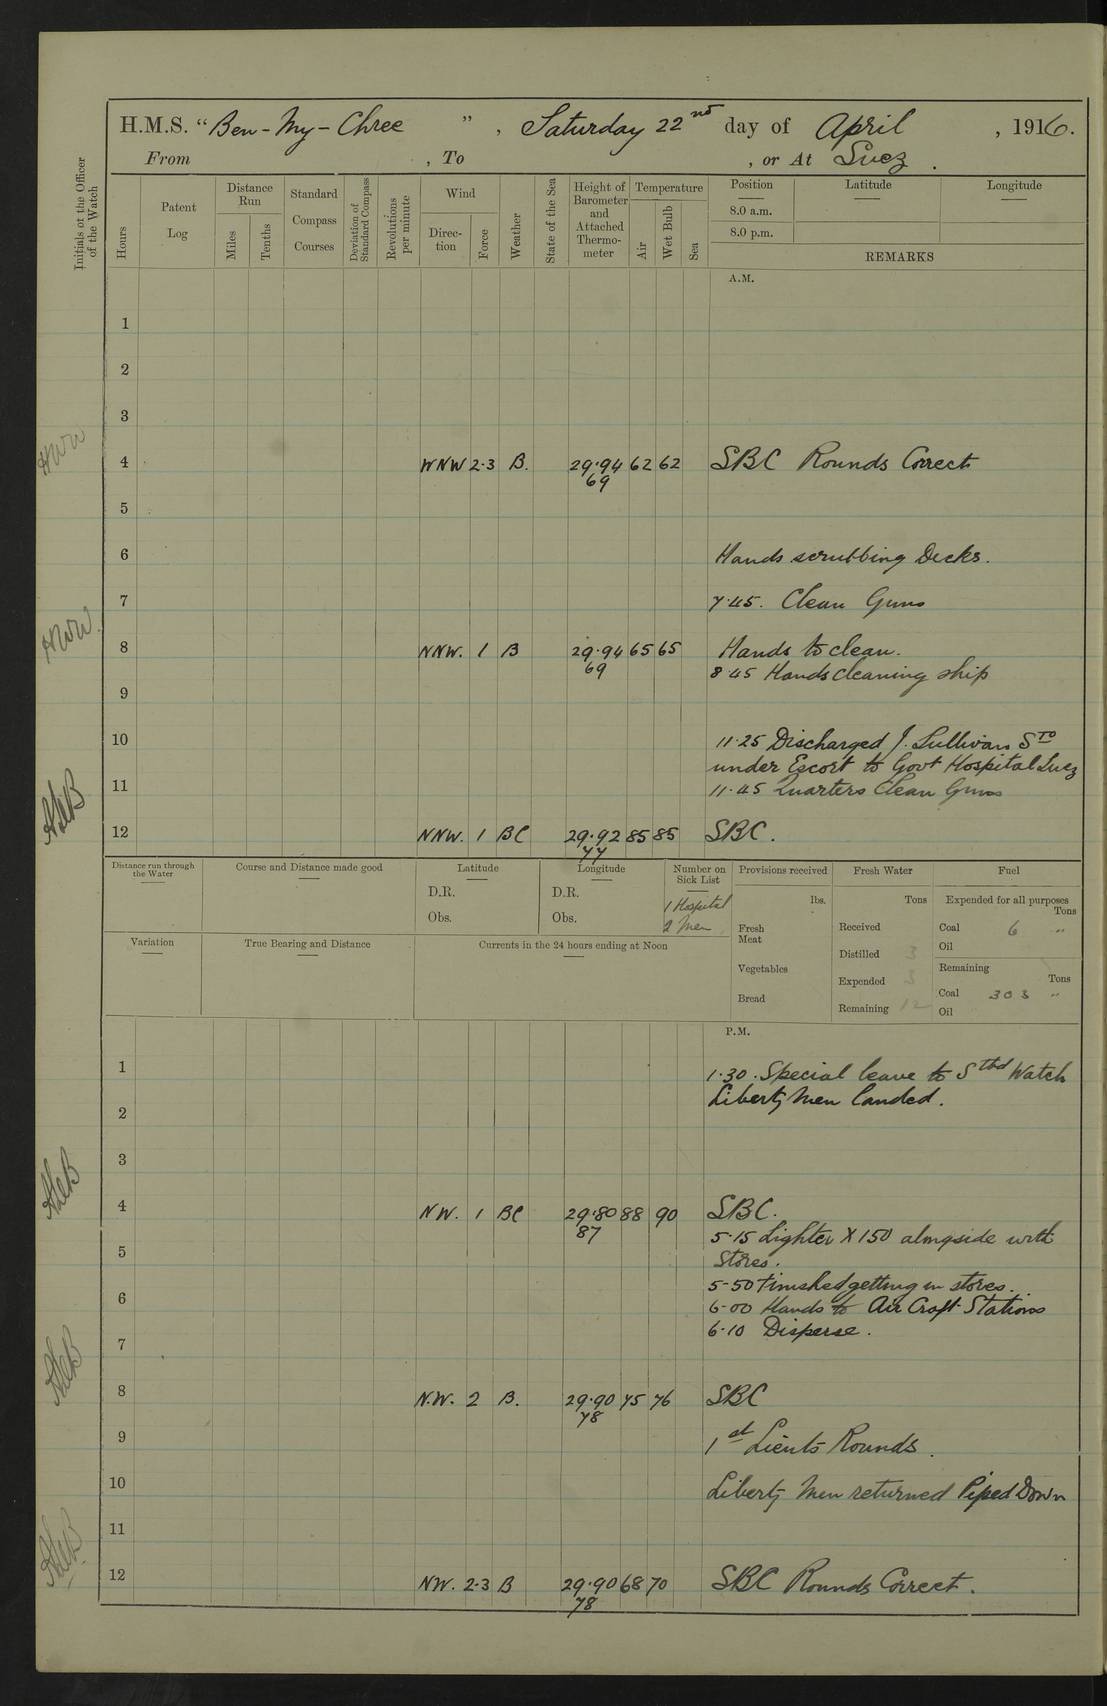 H.M.S. "Ben-My-Chree", Saturday 22nd day of April, 1916.
From , To , or At Suez.
Initials of the Officer of the Watch
Hours
Patent Log
Distance Run
Miles
Tenths
Standard Compass Courses
Deviation of Standard Compass
Revolutions per minute
Wind
Direction
Force
Weather
State of the Sea
Height of Barometer and Attached Thermometer
Temperature
Air
Wet Bulb
Sea
Position
8.0 a.m.
8.0 p.m.
Latitude
Longitude
REMARKS
A.M.
1
2
3
4 WNW 2-3 B. 29.94 62 62 SBC Rounds Correct
69
5
6 Hands scrubbing Decks.
7 7.45. Clean Guns
8 NNW. 1 B 29.94 65 65 Hands to clean.
69 8.45 Hands cleaning ship
9
10 11.25 Discharged J. Sullivan Sto
under Escort to Govt Hospital Suez
11 11.45 Quarters Clean Guns
12 NNW. 1 BC 29.92 85 85 SBC.
77
Distance run through the Water
Course and Distance made good
Latitude
D.R.
Obs.
Longitude
D.R.
Obs.
Number on Sick List
1 Hospital
2 Men
Provisions received
lbs.
Fresh Meat
Vegetables
Bread
Fresh Water
Tons
Received
Distilled 3
Expended 3
Remaining 12
Fuel
Expended for all purposes
Tons
Coal 6 "
Oil
Remaining
Tons
Coal 303 "
Oil
Variation
True Bearing and Distance
Currents in the 24 hours ending at Noon
P.M.
1 1.30. Special leave to Stbd Watch
Liberty Men landed.
2
3
4 NW. 1 BC 29.80 88 90 SBC.
87 5.15 Lighter X150 alongside with
5 Stores.
5-50 Finished getting in stores.
6 6-00 Hands to Air Craft Stations
6-10 Disperse.
7
8 N.W. 2 B. 29.90 75 76 SBC
78
9 1st Lieuts Rounds.
10 Liberty Men returned Piped Down
11
12 NW. 2-3 B 29.90 68 70 SBC Rounds Correct.
78